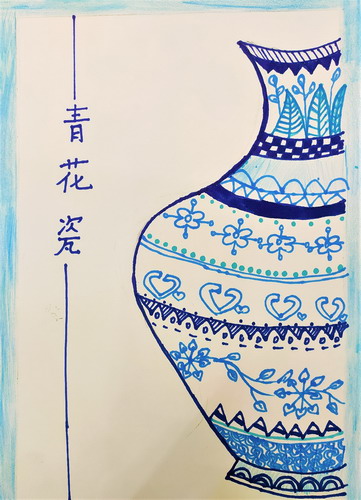 青花瓷